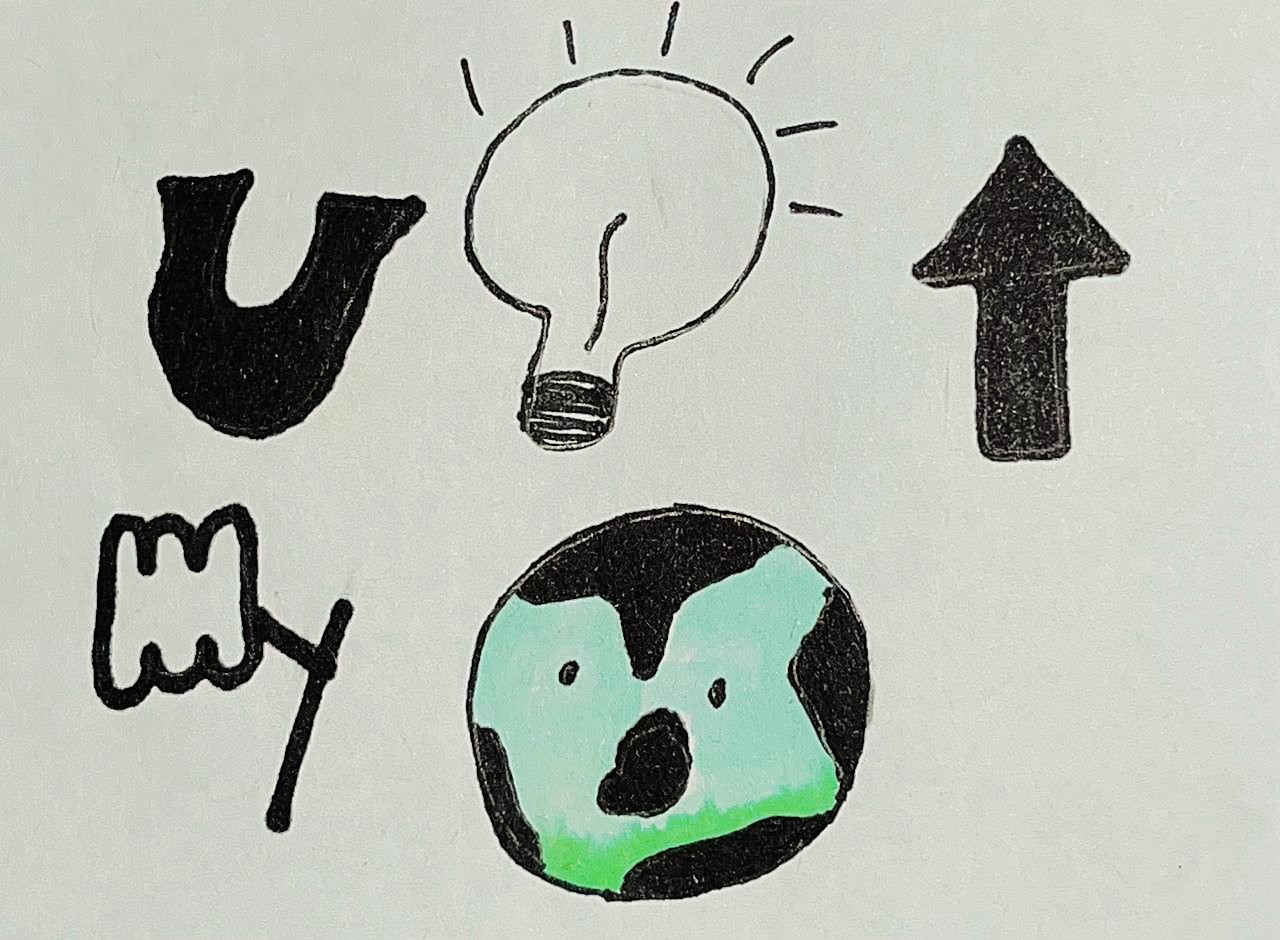 U
My